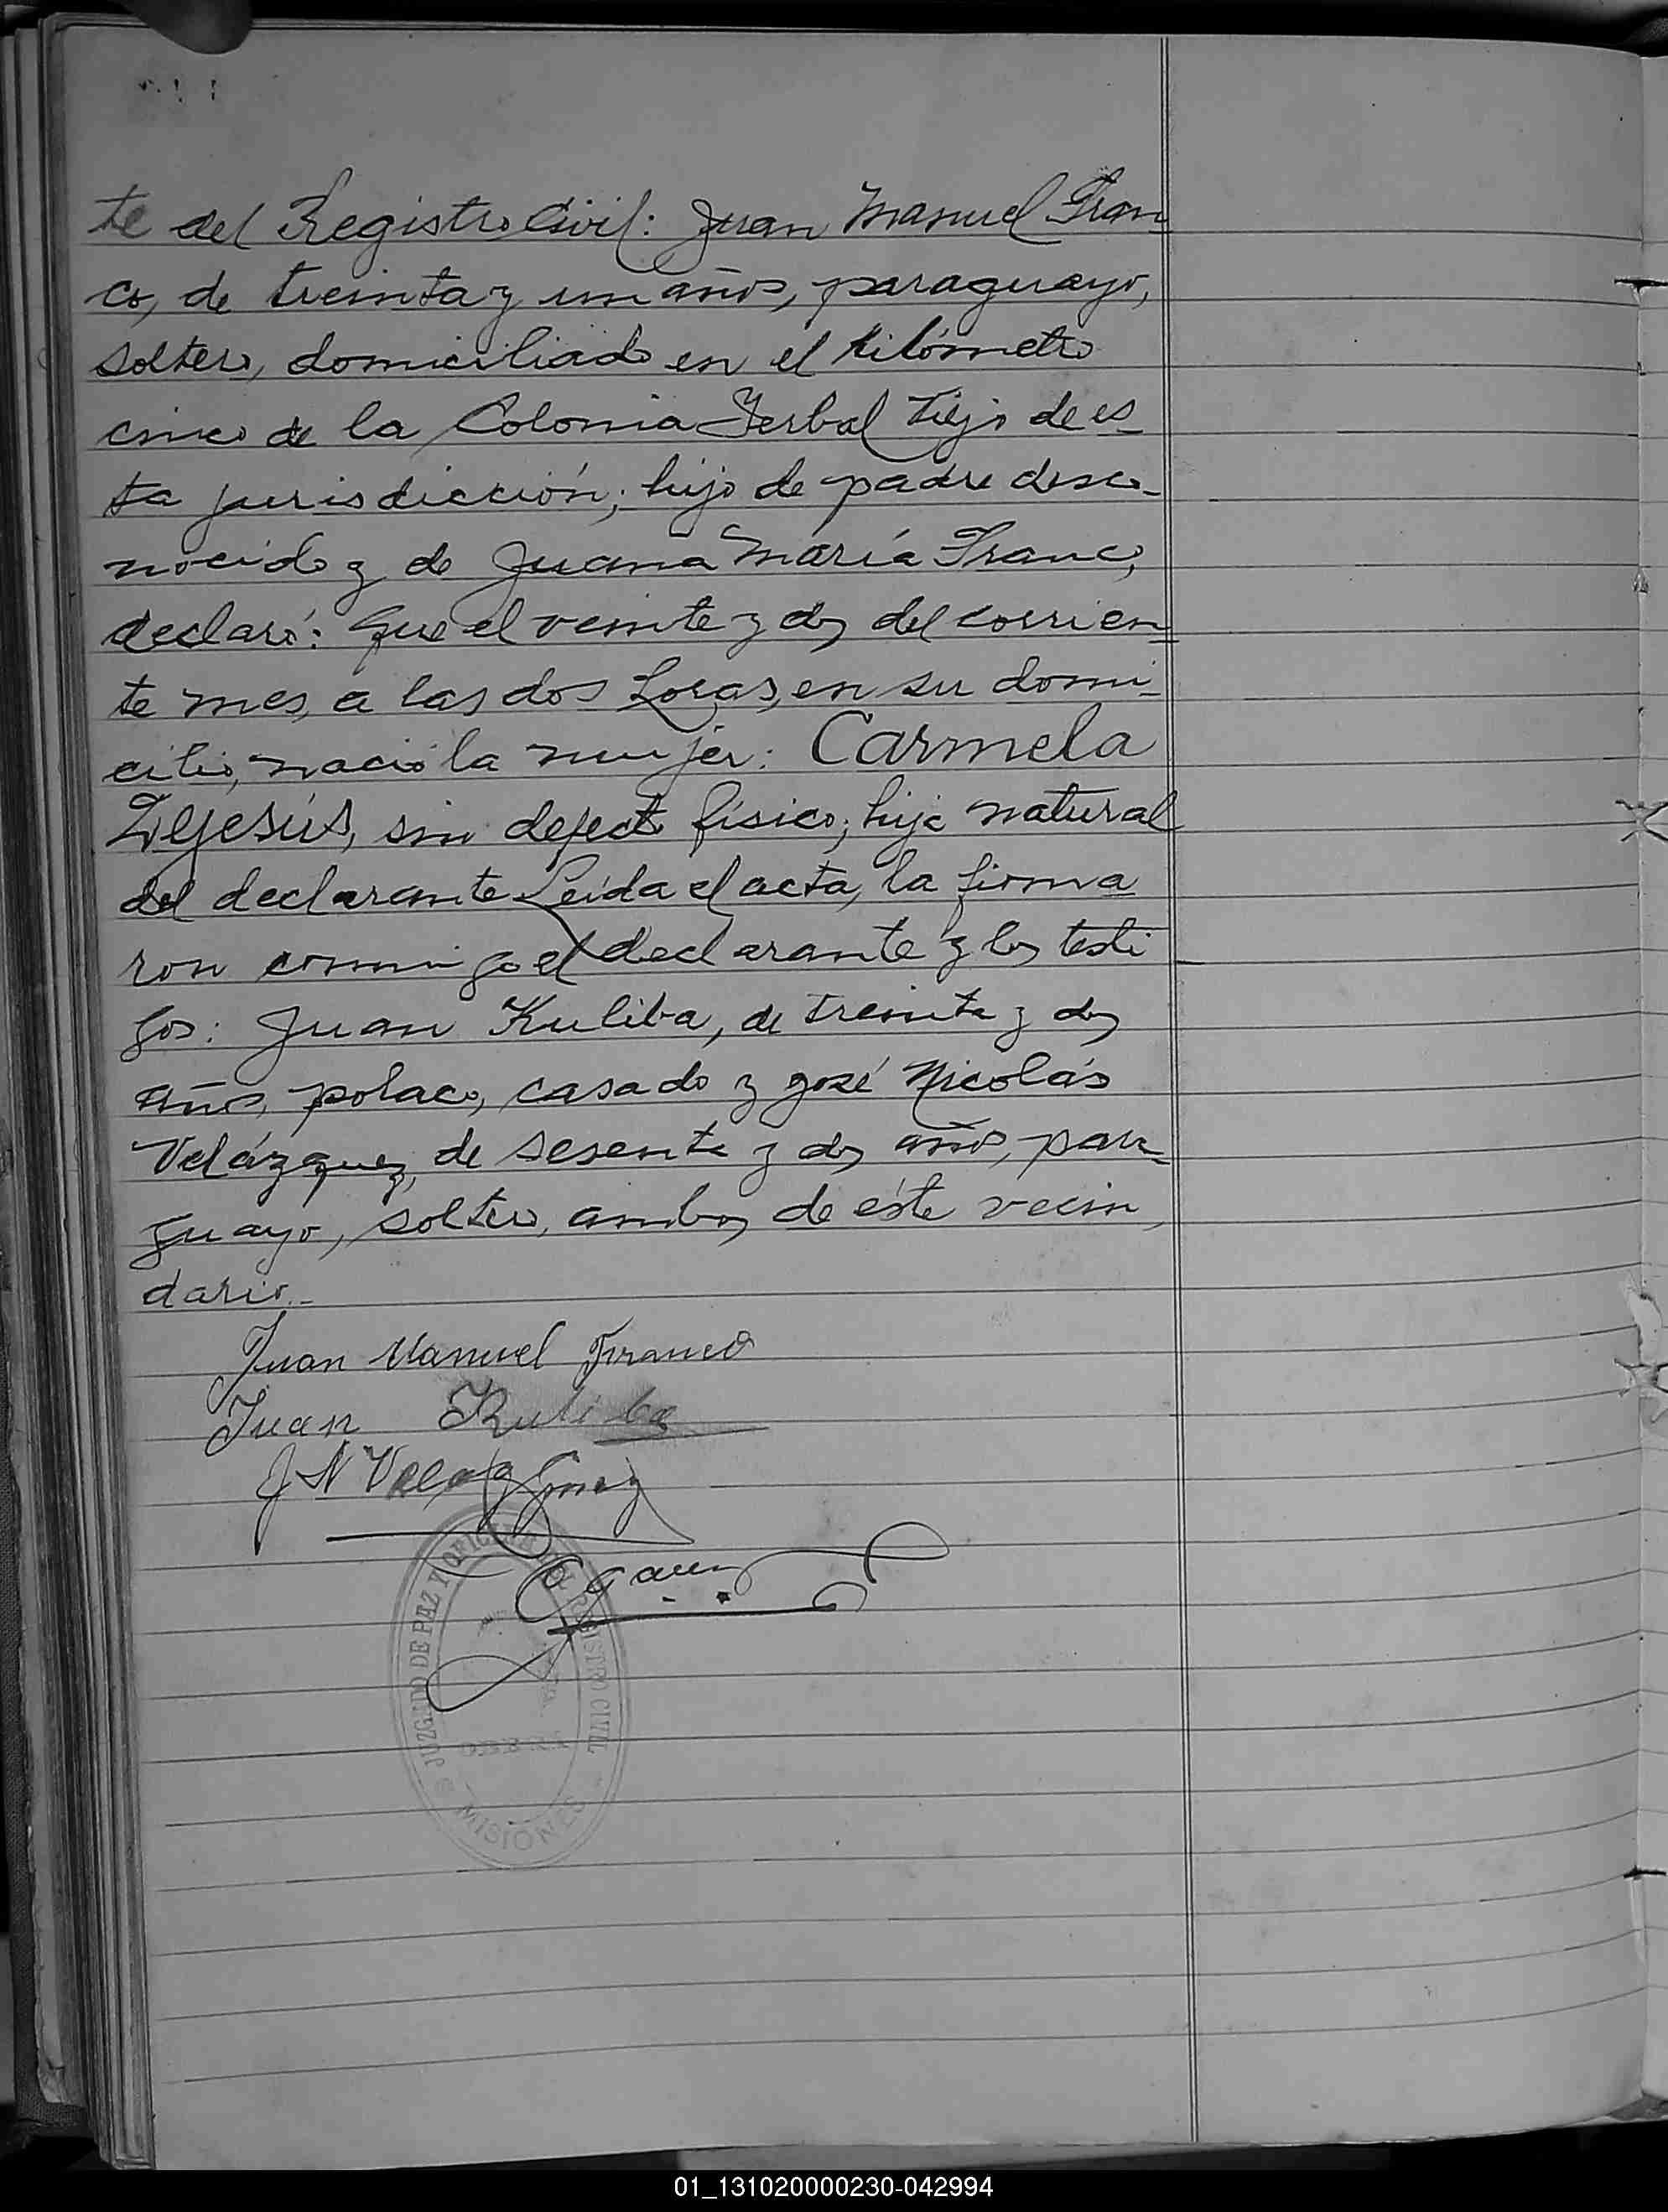 te del Registro Civil: Juan Manuel Fran
co, de treinta y un años, paraguayo,
soltero, domiciliado en el kilómetro
cinco de la Colonia Yerbal Viejo de es_
ta jurisdicción; hijo de padre desco_
nocido y de Juana María Franco,
declaró: Que el veinte y dos del corrien_
te mes, a las dos horas, en su domi_
cilio, nació la mujer: Carmela
Dejesús, sin defecto físico; hija natural
del declarante Leída el acta, la firma
ron conmigo el declarante y los testi
gos: Juan Kuliba, de treinta y dos
años, polaco, casado y José Nicolás
Velázquez, de sesenta y dos años, para_
guayo, soltero, ambos de éste vecin_
dario._
Juan Manuel Franco
Juan Kuliba
J N Velazquez
JUZGADO DE PAZ Y OFICINA DE REGISTRO CIVIL
MISIONES
01_131020000230-042994